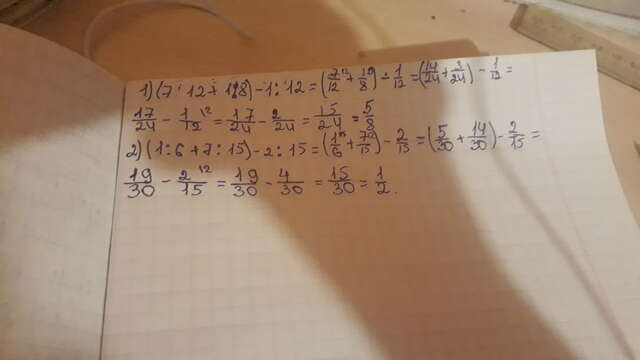 1) (7:12+1:8)-1:12=(7/12+1/8)-1/12=(14/24+3/24)-1/12=
17/24-1/12=17/24-2/24=15/24=5/8
2) (1:6+7:15)-2:15=(1/6+7/15)-2/15=(5/30+14/30)-2/15=
19/30-2/15=19/30-4/30=15/30=1/2.